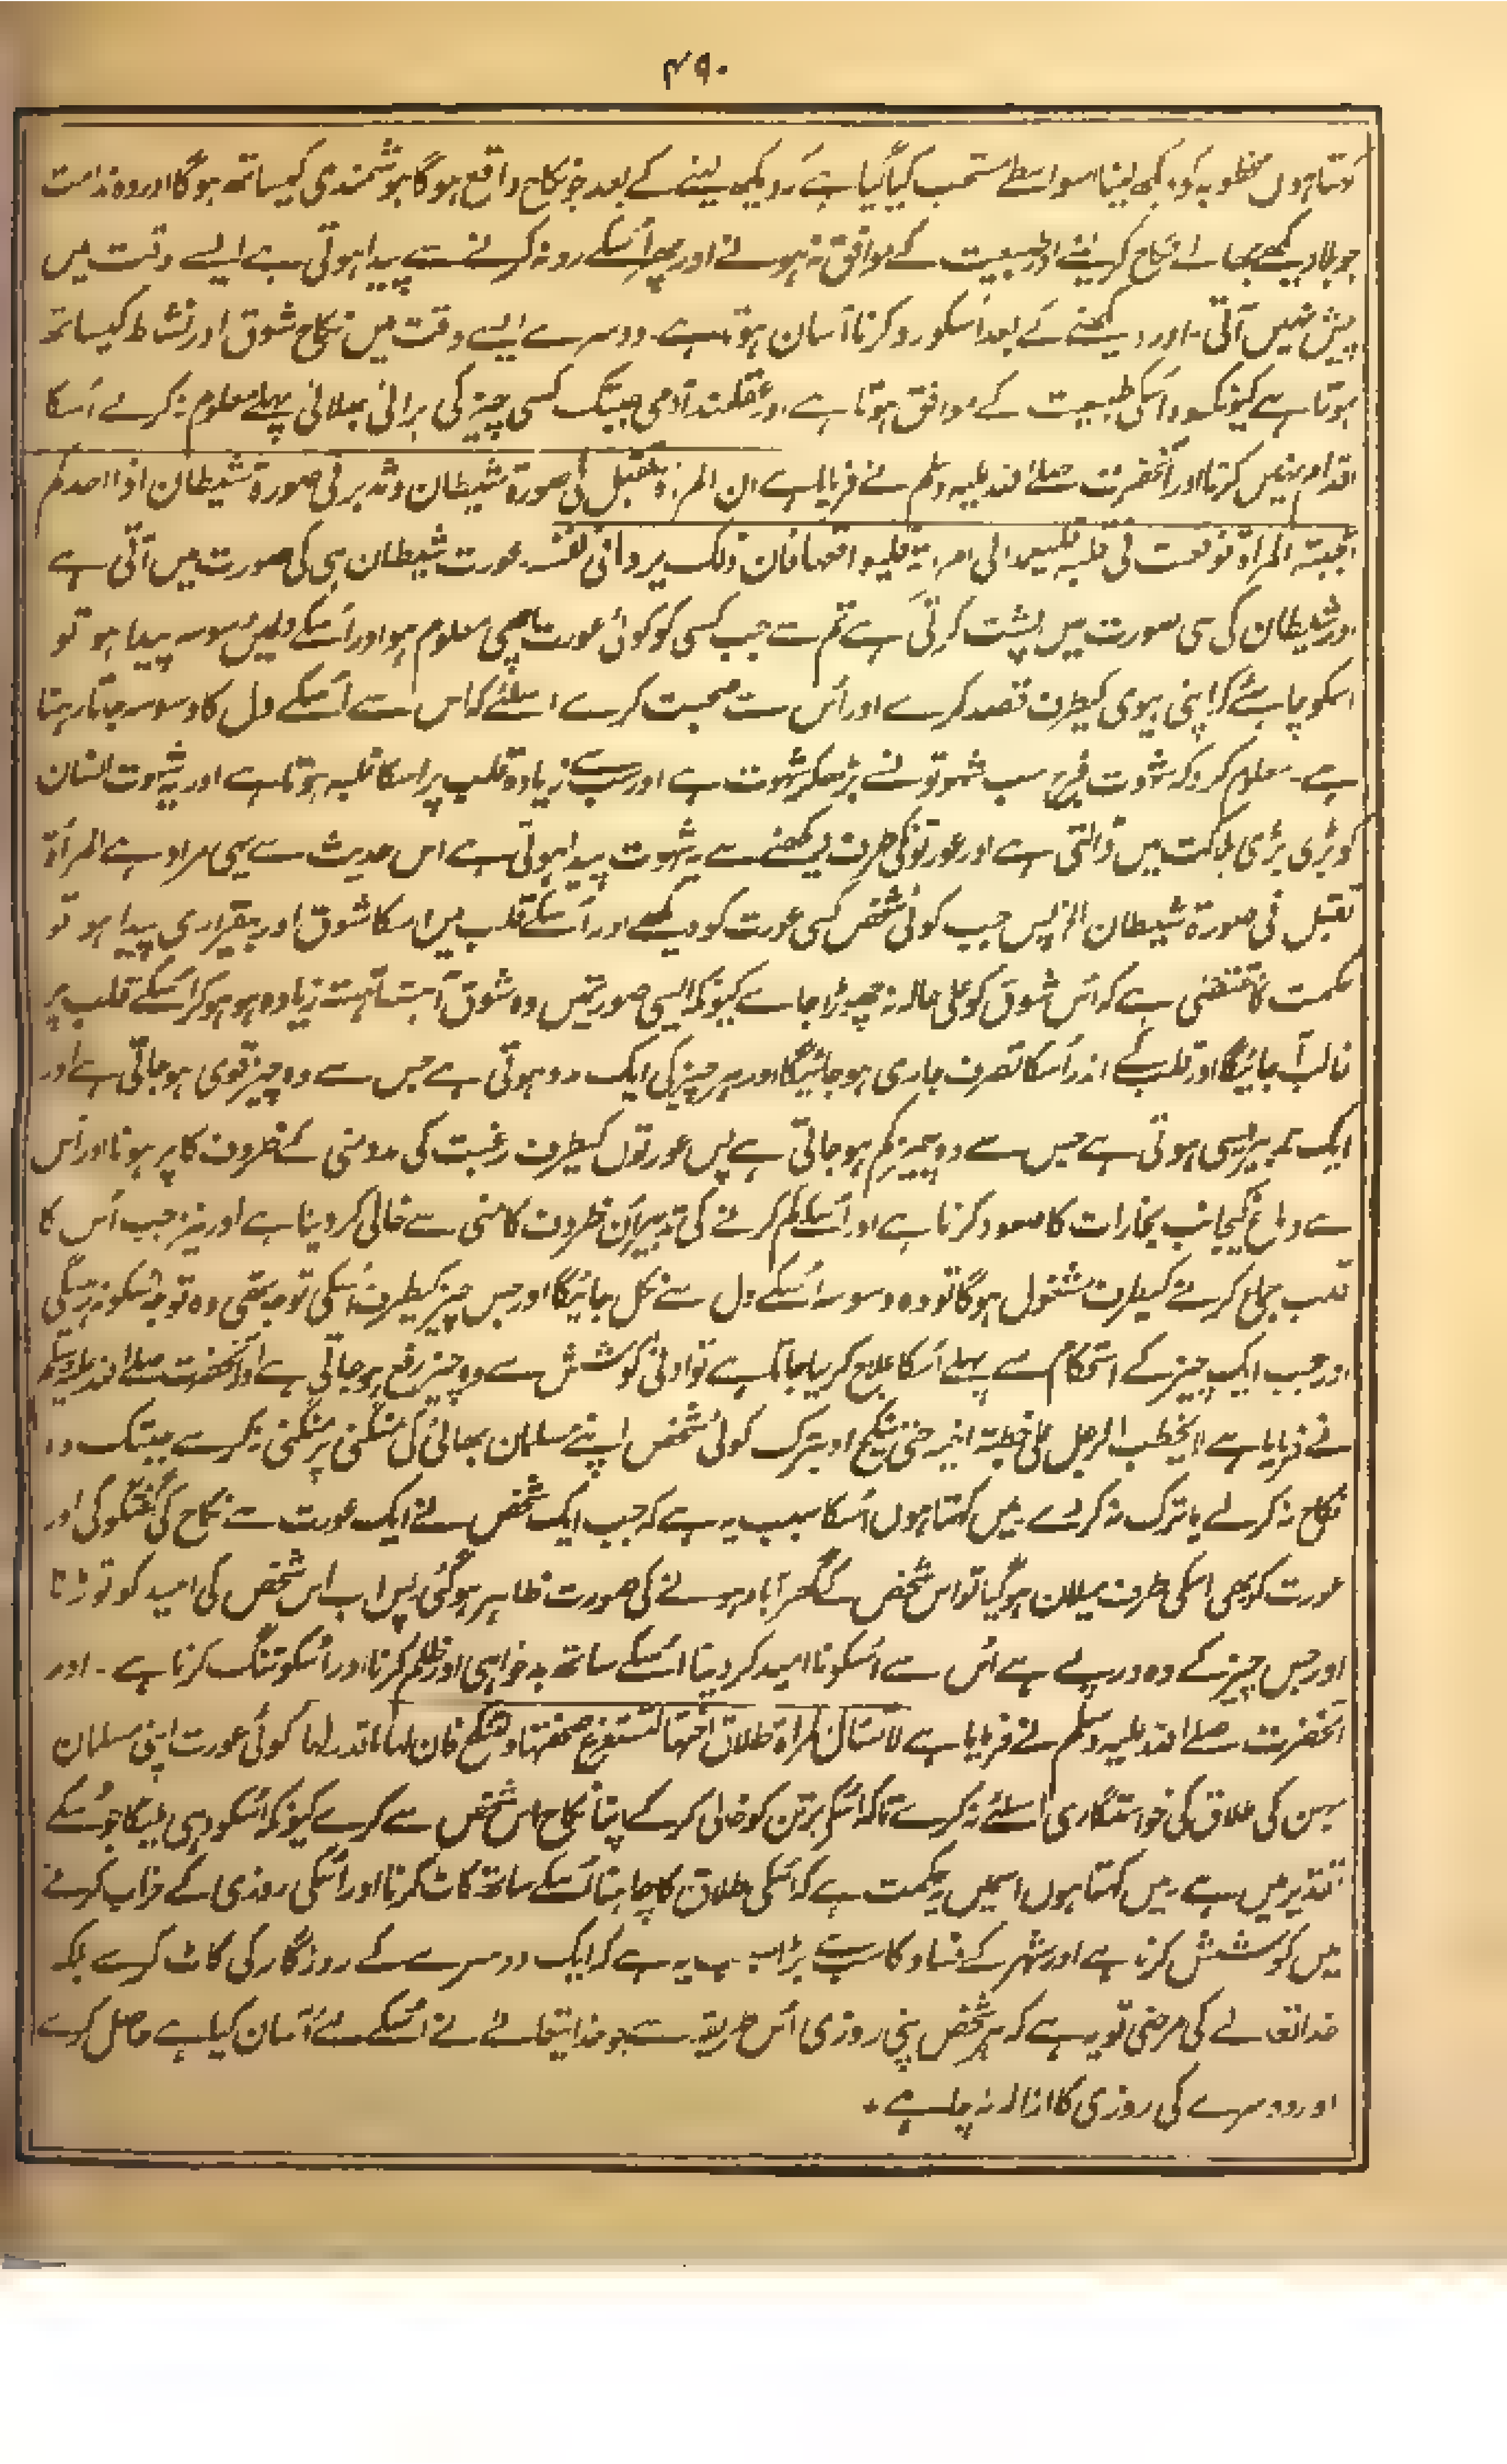 ۴۹۰
کہتا ہوں مخطوبہ کو دیکھ لینا اسواسطے مستحب کیا گیا ہے کہ دیکھ لینے کے بعد جو نکاح واقع ہوگا ہوشمندی کیساتھ ہوگا اور وہ ندامت
جو بلا دیکھے بھالے نکاح کر لینے اور طبیعت کے موافق نہ ہونے اور پھر اُسکے رد نہ کرنے سے پیدا ہوتی ہے ایسے وقت میں
پیش نہیں آتی۔ اور دیکھنے کے بعد اُسکو رد کرنا آسان ہوتا ہے۔ دوسرے ایسے وقت میں نکاح شوق اور نشاط کیساتھ
ہوتا ہے کیونکہ وہ اُسکی طبیعت کے موافق ہوتا ہے اور عقلمند آدمی جبتک کسی چیز کی برائی بھلائی پہلے معلوم نہ کرلے اُسکا
اقدام نہیں کرتا اور آنحضرت صلے اللہ علیہ وسلم نے فرمایا ہے ان المرأۃ تقبل فی صورۃ شیطان وتدبر فی صورۃ شیطان اذا احدکم
اعجبتہ المرأۃ فوقعت فی قلبہ فلیعمد الی امرأتہ فلیواقعہا فان ذلک یرد مافی نفسہ۔ عورت شیطان ہی کی صورت میں آتی ہے
اور شیطان کی سی صورت میں پشت کرتی ہے تم سے جب کسی کو کوئی عورت اچھی معلوم ہو اور اُسکے دلمیں وسوسہ پیدا ہو تو
اسکو چاہئے کہ اپنی بیوی کیطرف قصد کرے اور اُس سے صحبت کرے اسلئے کہ اس سے اُسکے دل کا وسوسہ جاتا رہتا
ہے۔ معلوم کرو کہ شہوت فرج سب شہوتوں نے بڑھکر شہوت ہے اور سب سے زیادہ قلب پر اسکا غلبہ ہوتا ہے اور یہ شہوت انسان
کو بڑی بڑی ہلاکت میں ڈالتی ہے اور عورتونکی طرف دیکھنے سے یہ شہوت پیدا ہوتی ہے اس حدیث سے یہی مراد ہے المرأۃ
تقبل فی صورۃ شیطان الخ پس جب کوئی شخص کسی عورت کو دیکھے اور اُسکے قلب میں اسکا شوق اور بیقراری پیدا ہو تو
حکمت کا مقتضی ہے کہ اُس شوق کو علی حالہ نہ چھوڑا جاے کیونکہ ایسی صورتمیں وہ شوق آہستہ آہستہ زیادہ ہو ہوکر اُسکے قلب پر
غالب آجائیگا اور قلب کے اندر اُسکا تصرف جاری ہوجائیگا اور ہر چیز کی ایک مدد ہوتی ہے جس سے وہ چیز قوی ہوجاتی ہے اور
ایک تدبیر ایسی ہوتی ہے جس سے وہ چیز کم ہوجاتی ہے پس عورتوں کیطرف رغبت کی مدد منی کے ظروف کا پر ہونا اور اُس
سے دماغ کیجانب بخارات کا صعود کرنا ہے اور اُسکے کم کرنے کی تدبیر اُن ظروف کا منی سے خالی کردینا ہے اور نیز جب اُس کا
قلب جماع کرنے کیطرف مشغول ہوگا تو وہ وسوسہ اُسکے دل سے نکل جائیگا اور جس چیز کیطرف اُسکی توجہ تھی وہ توجہ اُسکو نہ رہیگی
اور جب ایک چیز کے استحکام سے پہلے اُسکا علاج کرلیا جاتا ہے تو ادنیٰ کوشش سے وہ چیز رفع ہوجاتی ہے اور آنحضرت صلے اللہ علیہ وسلم
نے فرمایا ہے لا یخطب الرجل علی خطبۃ اخیہ حتی ینکح او یترک کوئی شخص اپنے مسلمان بھائی کی منگنی پر منگنی نہ کرے جبتک وہ
نکاح نہ کرلے یا ترک نہ کردے۔ میں کہتا ہوں اُسکا سبب یہ ہے کہ جب ایک شخص نے ایک عورت سے نکاح کی گفتگو کی اور
عورت کو بھی اسکی طرف میلان ہوگیا تو اس شخص کے گھر آباد ہونے کی صورت ظاہر ہوگئی پس اب اس شخص کی امید کو توڑنا
اور جس چیز کے وہ درپے ہے اُس سے اُسکو نا امید کردینا اُسکے ساتھ بدخواہی اور ظلم کرنا اور اُسکو تنگ کرنا ہے۔ اور
آنحضرت صلے اللہ علیہ وسلم نے فرمایا ہے لا تسأل المرأۃ طلاق اختہا لتستفرغ صحفتہا ولتنکح فان لہا ما قدر لہا کوئی عورت اپنی مسلمان
بہن کی طلاق کی خواستگاری اسلئے نہ کرے تاکہ اُسکے برتن کو خالی کرکے اپنا نکاح اس شخص سے کرے کیونکہ اُسکو وہی ملیگا جو اُسکے
تقدیر میں ہے۔ میں کہتا ہوں اسمیں یہ حکمت ہے کہ اُسکی طلاق کا چاہنا اُسکے ساتھ کاٹ کرنا اور اُسکی روزی کے خراب کرنے
میں کوشش کرنا ہے اور شہر کے فساد کا سب سے بڑا سبب یہ ہے کہ ایک دوسرے کے روزگار کی کاٹ کرے بلکہ
خدا تعالے کی مرضی تو یہ ہے کہ ہر شخص اپنی روزی اُس طریقہ سے جو خدا یتعالے نے اُسکے لئے آسان کیا ہے حاصل کرے
اور دوسرے کی روزی کا ازالہ نہ چاہے ٭